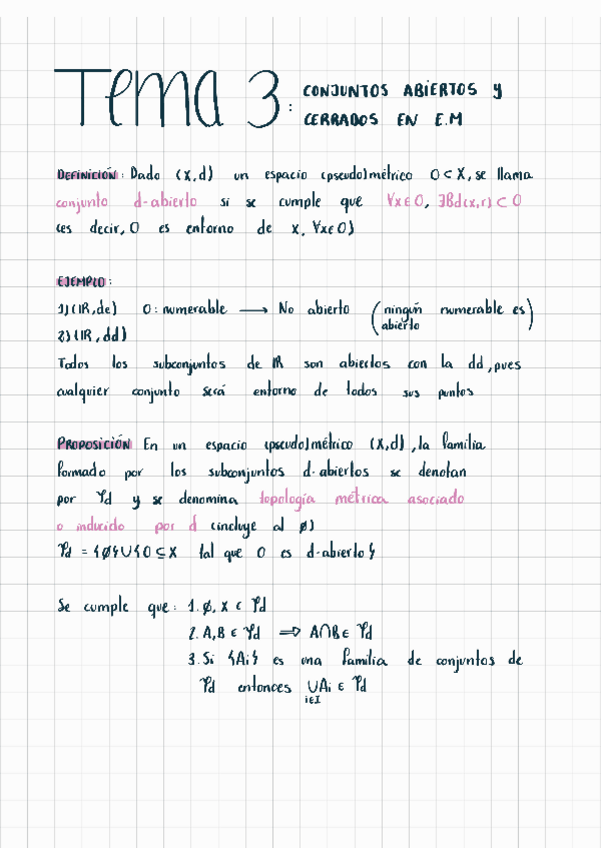 Tema 3: CONJUNTOS ABIERTOS y
CERRADOS EN E.M
DEFINICIÓN: Dado (X,d) un espacio (pseudo)métrico O⊂X, se llama
conjunto d-abierto si se cumple que ∀x∈O, ∃Bd(x,r)⊂O
(es decir, O es entorno de x, ∀x∈O)
EJEMPLO:
1)(ℝ,de) O: numerable → No abierto (ningún numerable es abierto)
2)(ℝ,dd)
Todos los subconjuntos de ℝ son abiertos con la dd, pues
cualquier conjunto será entorno de todos sus puntos
PROPOSICIÓN En un espacio (pseudo)métrico (X,d), la familia
formado por los subconjuntos d-abiertos se denotan
por τd y se denomina topología métrica asociado
o inducido por d (incluye al ∅)
τd = {∅}∪{O⊆X tal que O es d-abierto}
Se cumple que: 1. ∅, X ∈ τd
2. A,B ∈ τd ⟹ A∩B ∈ τd
3. Si {Ai} es una familia de conjuntos de
τd entonces ∪Ai ∈ τd
i∈I